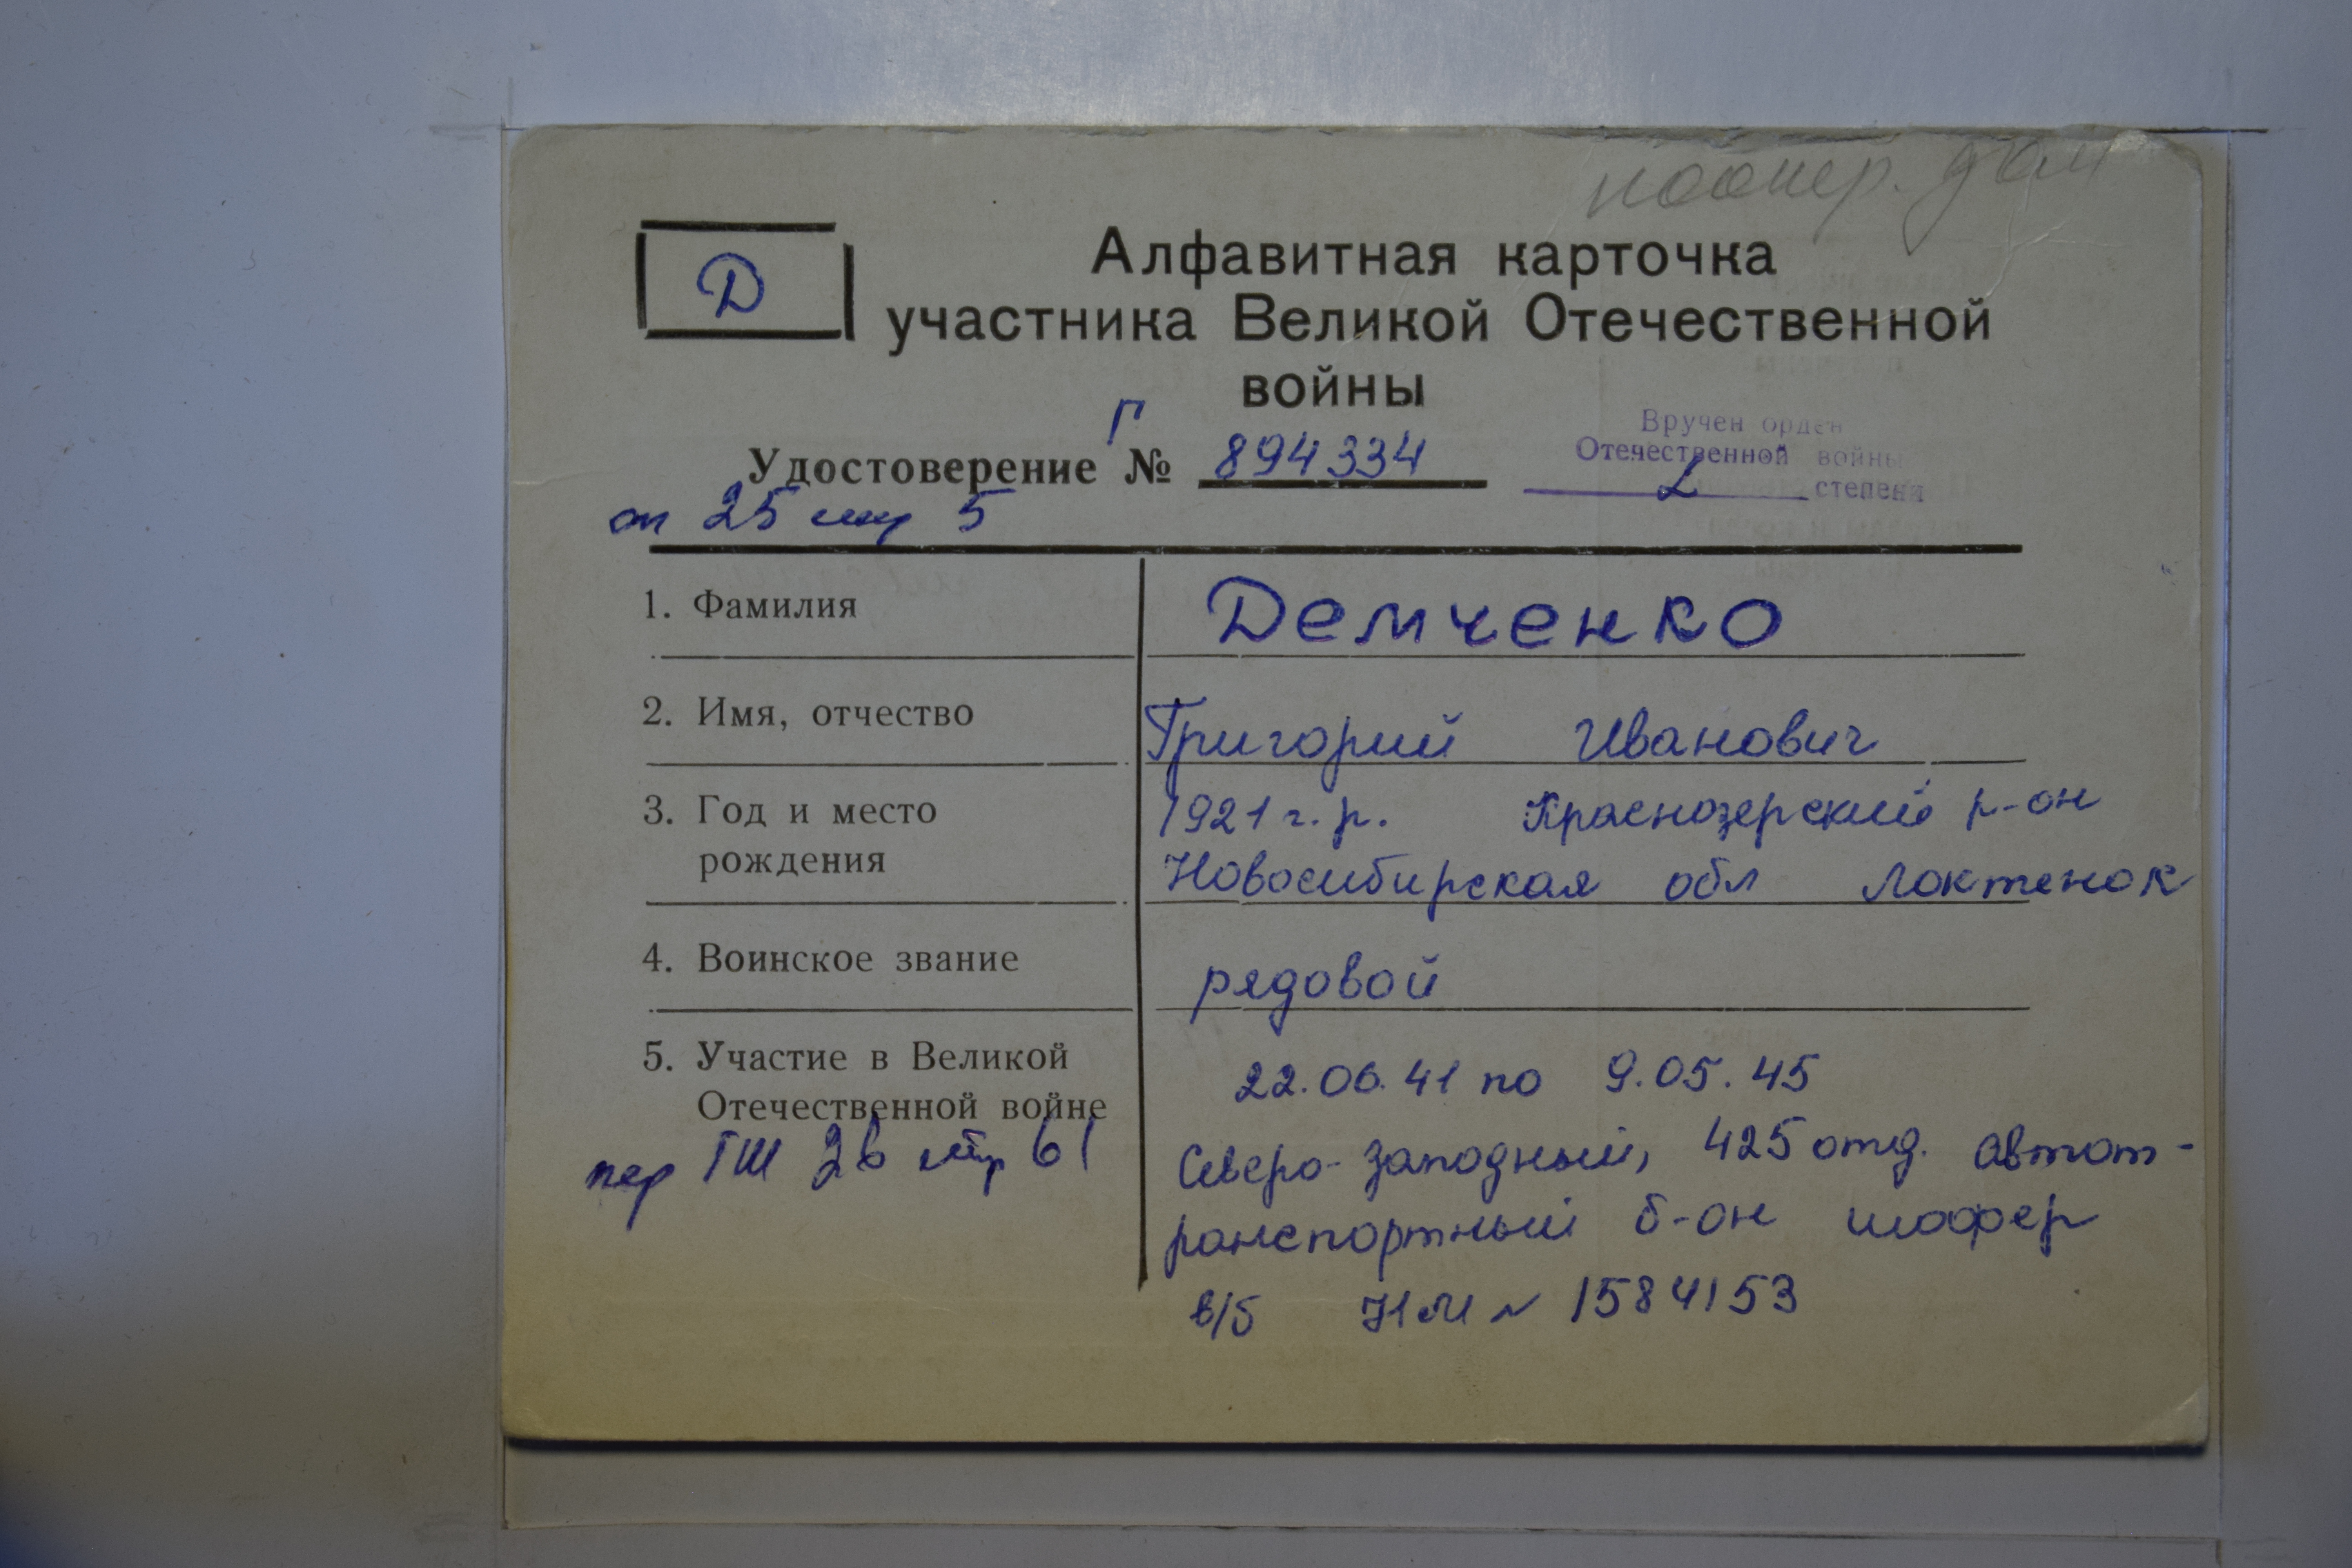 коопер. дом
Д
Алфавитная карточка
участника Великой Отечественной
войны
Удостоверение Г № 894334
Вручен орден
Отечественной войны
2 степени
оп 25 стр 5
1. Фамилия Демченко
2. Имя, отчество Григорий Иванович
3. Год и место 1921 г.р. Краснозерский р-он
рождения Новосибирская обл Локтенок
4. Воинское звание рядовой
5. Участие в Великой 22.06.41 по 9.05.45
Отечественной войне
пер ГШ 26 стр 61
Северо-западный, 425 отд. автот-
ранспортный б-он шофер
в/б НМ № 1584153